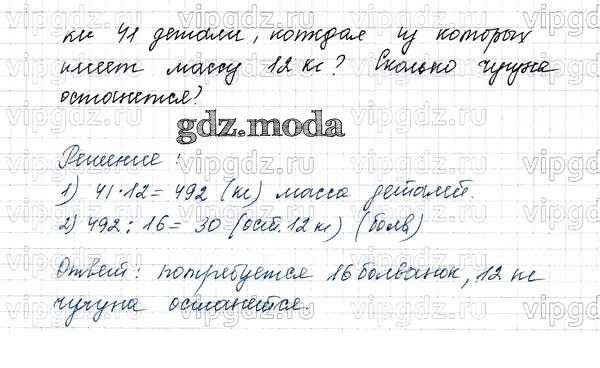 ки 41 детали, каждая из которых
имеет массу 12 кг? Сколько чугуна
останется?
gdz.moda
Решение:
1) 41·12=492 (кг) масса деталей.
2) 492:16=30 (ост. 12 кг) (болв)
Ответ: потребуется 16 болванок, 12 кг
чугуна останется.